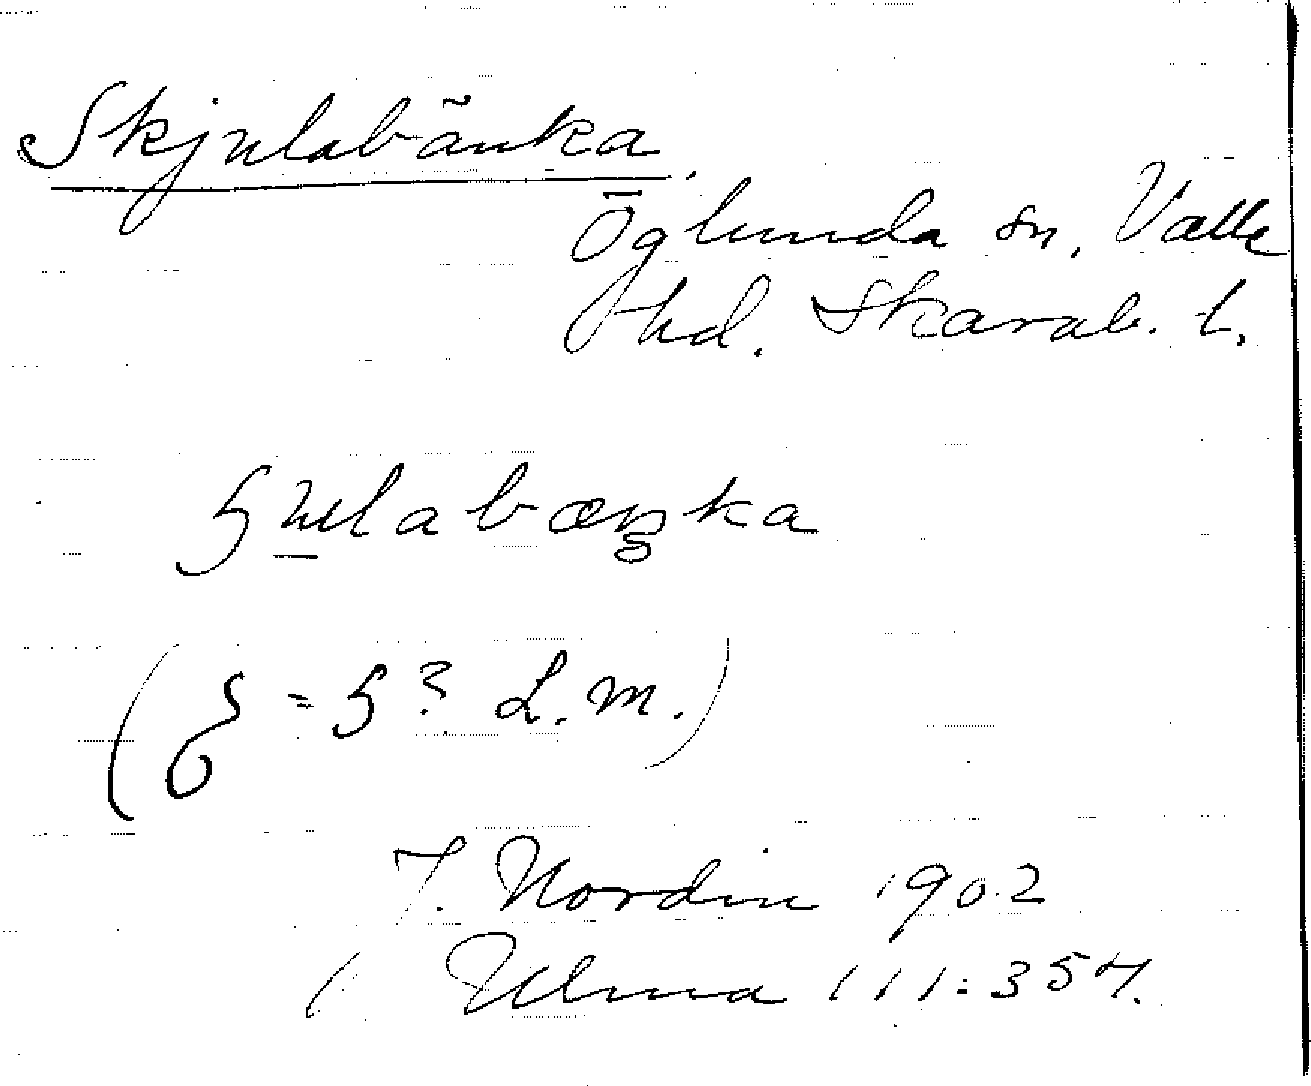 Skjulabänka.
Öglunda sn, Valle
hd. Skarab. l.
ɧu̲labæŋka
( = ɧ? L.m.)
T. Nordin 1902
i Ulma 111:357.